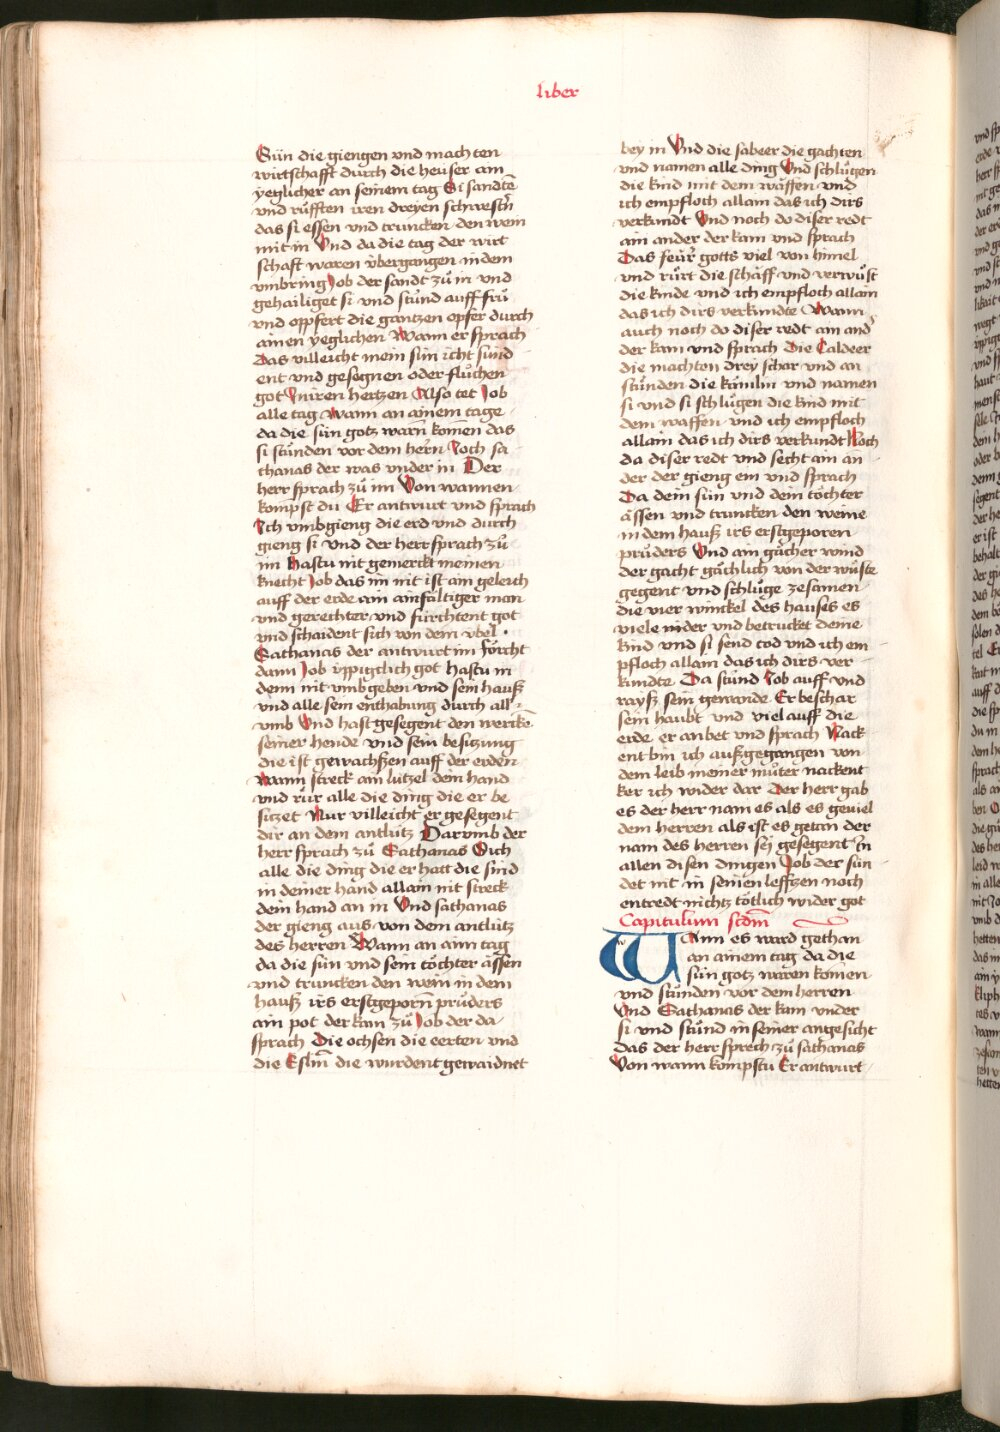 liber
Sün die giengen vnd mach ten
wirtschafft durch die heüser ain
yeglicher an seinem tag Si sandtē
vnd rüfften iren dreyen schwestn̄
das si essen vnd truncken den wein
mit in Vnd da die tag der wirt
schaft waren v̈bergangen in dem
vmbring Job der sandt zů in vnd
gehailiget si vnd stůnd auff frů
vnd oppfert die gantzen opfer durch
ainen yeglichen Wann er sprach
Das villeicht mein sün icht sünd
ent vnd gesegnen oder flůchen
got Jn iren hertzen Also tet Job
alle tag Wann an ainem tage
da die sün gotz warn komen das
si stůnden vor dem hern̄ Noch sa
thanas der was vnder in Der
herr sprach zů im Von wannen
kompst du Er antwurt vnd sprach
Ich vmbgieng die erd vnd durch
gieng si vnd der herr sprach zů
im Hastu nit gemerckt meinen
knecht Job das im nit ist ain geleich
auff der erde ain ainfältiger man
vnd gerechter vnd fürchtent got
vnd schaident sich von dem vbel
Sathanas der antwurt im Förcht
dann Job v̈ppigclich got Hastu in
denn nit vmbgeben vnd sein hauß
vnd alle sein enthabung durch all
vmb Vnd hast gesegent den werckē
seiner hende vnd sein besitzung
die ist gewachssen auff der erden
Wann streck ain lützel dein hand
vnd rür alle die ding die er be
sitzet Nur villeicht er gesegent
dir an dem antlütz Darvmb der
herr sprach zů Sathanas Sich
alle die ding die er hatt die sind
in deiner hand allain nit streck
dein hand an in Vnd sathanas
der gieng aus von dem antlütz
des herren Wann an ainn tag
da die sün vnd sein töchter ässen
vnd truncken den wein in dem
hauß irs erstgeporn̄ průders
ain pot der kam zů Job der da
sprach Die ochsen die eerten vnd
die Eslin̄ die wurdent gewaidnet
bey in Vnd die sabeer die gachten
vnd namen alle ding Vnd schlůgen
die kind mit dem waffen vnd
ich empfloch allain das ich dirs
verkündt Vnd noch do diser redt
ain ander der kam vnd sprach
Das feür gotts viel von himel
vnd rürt die schäff vnd verwůst
die kinde vnd ich empfloch allain
das ich dirs verkündte Wann
auch noch do diser redt ain and
der kam vnd sprach Die Caldeer
die machten drey schar vnd an
stůnden die kämlin vnd namen
si vnd si schlůgen die kind mit
dem waffen vnd ich empfloch
allain das ich dirs verkündt Noch
da diser redt vnd secht ain an
der der gieng ein vnd sprach
Da dein sün vnd dein töchter
ässen vnd truncken den weine
in dem hauß irs erstgeporen
průders Vnd ain gächer wind
der gacht gächlich von der wůste
gegent vnd schlůge zesamen
die vier winckel des hauses es
viele nider vnd betrucket deine
kind vnd si send tod vnd ich em
pfloch allain das ich dirs ver
kündte Da stůnd Job auff vnd
rayß sein gewande Er beschar
sein haubt vnd viel auff die
erde er anbet vnd sprach Nack
ent bin ich außgegangen von
dem leib meiner můter nackent
ker ich wider dar Der herr gab
es der herr nam es als es geuiel
dem herren als ist es getan der
nam des herren sey gesegent Jn
allen disen dingen Job der sün
det nit in seinen lefftzen noch
entredt nichtz tötlich wider got
Capitulum scdm̄
WAnn es ward gethan
an ainem tag da die
sün gotz waren komen
vnd stůnden vor dem herren
Vnd Sathanas der kam vnder
si vnd stůnd in seiner angesicht
Das der herr sprech zů sathanas
Von wann kompstu Er antwurt